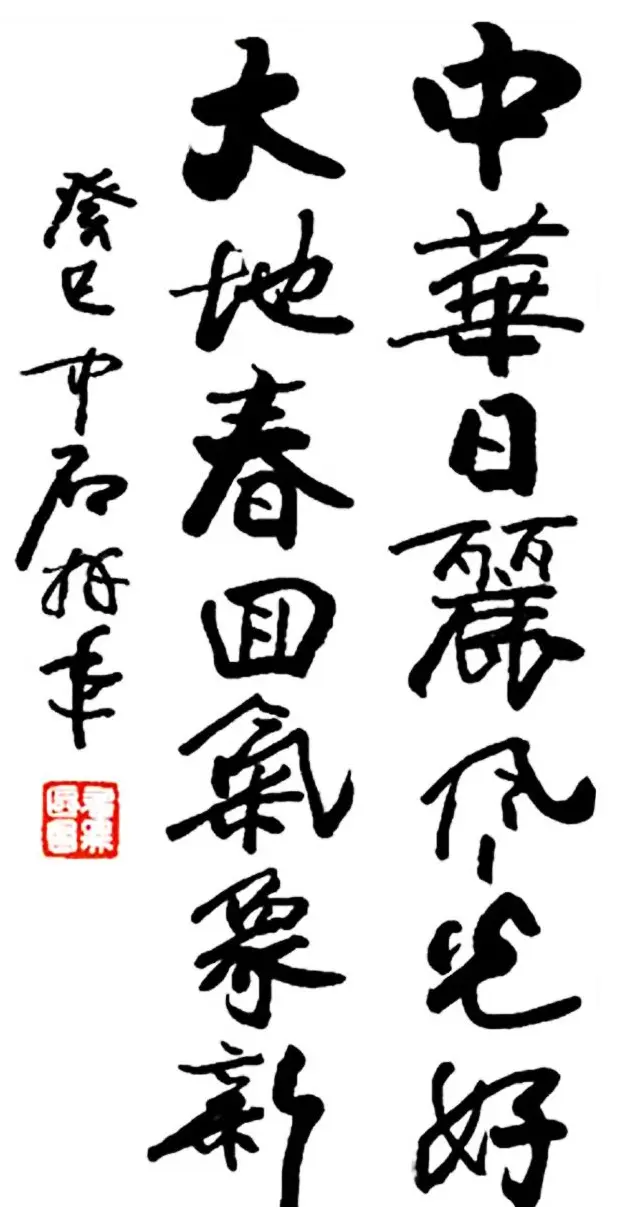 中華日麗風光好
大地春回氣象新
癸巳中石拜筆